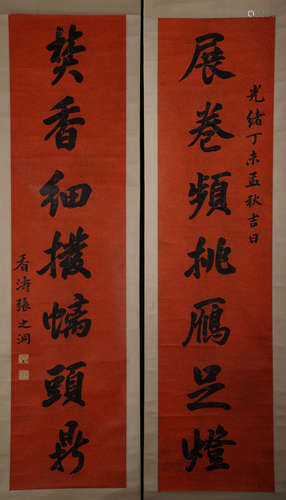 展卷頻挑雁足燈
光緒丁未孟秋吉日
爇香細撥螭頭鼎
香濤張之洞